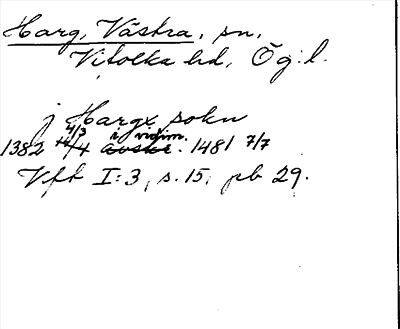 Harg, Västra, sn,
Vifolka hd, Ög.l.
j Hargx sokn
4/3 i vidim.
1382 14/4 avskr. 1481 7/7
Vft I:3, s. 15, pb 29.